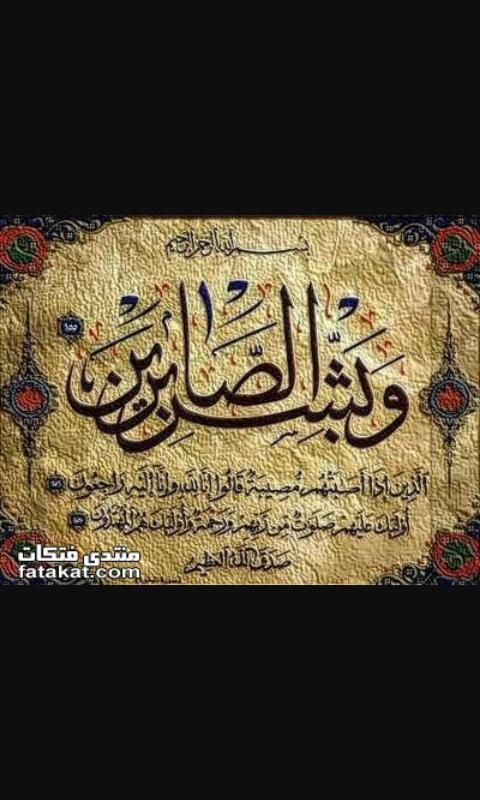 بسم الله الرحمن الرحيم
وَبَشِّرِ الصَّابِرِينَ ١٥٥
الَّذِينَ إِذَا أَصَابَتْهُم مُّصِيبَةٌ قَالُوا إِنَّا لِلَّهِ وَإِنَّا إِلَيْهِ رَاجِعُونَ ١٥٦
أُولَٰئِكَ عَلَيْهِمْ صَلَوَاتٌ مِّن رَّبِّهِمْ وَرَحْمَةٌ وَأُولَٰئِكَ هُمُ الْمُهْتَدُونَ ١٥٧
صدق الله العظيم
منتدى فتكات
fatakat.com